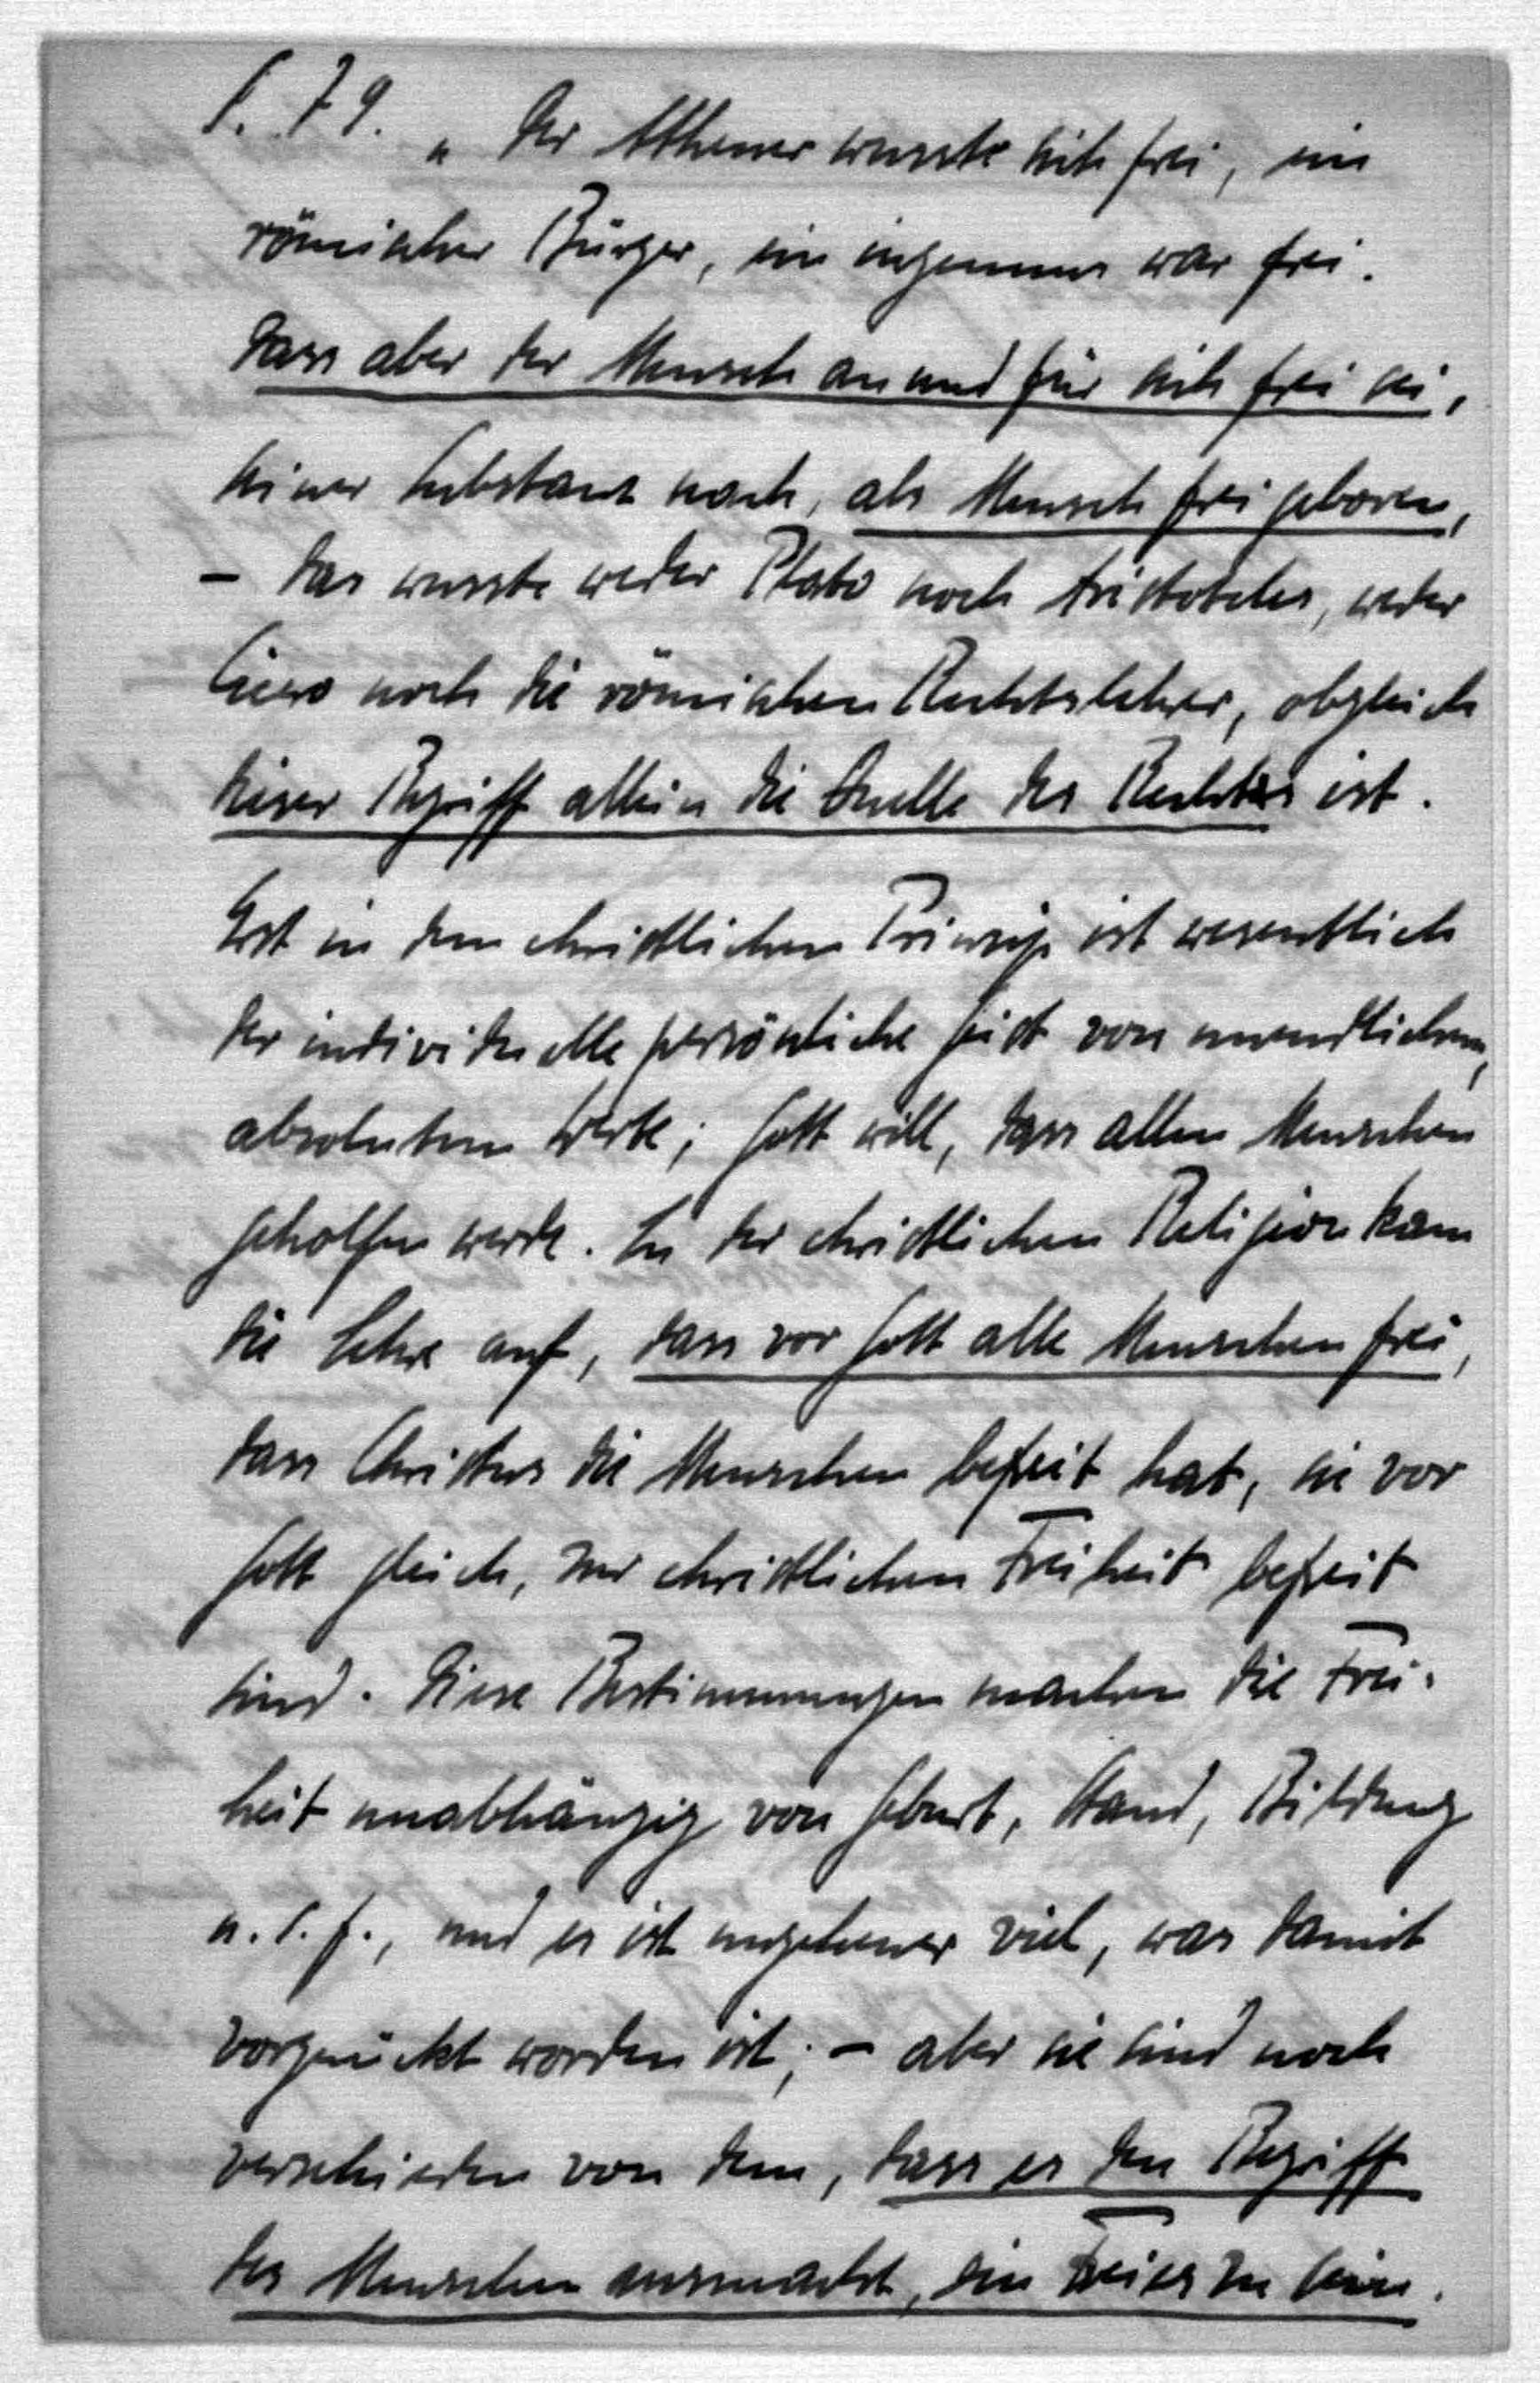 S. 79. „ Der Athener wusste sich frei, ein
römischer Bürger, ein ingenuus war frei.
Dass aber der Mensch an und für sich frei sei,
seiner Substanz nach, als Mensch frei geboren,
– das wusste weder Plato noch Aristoteles, weder
Cicero noch die römischen Rechtslehrer, obgleich
dieser Begriff allein die Quelle des Rechtes ist.
Erst in dem christlichen Prinzip ist wesentlich
der individuelle persönliche Geist von unendlichem,
absolutem Werte; Gott will, dass allen Menschen
geholfen werde. In der christlichen Religion kam
die Lehre auf, dass vor Gott alle Menschen frei,
dass Christus die Menschen befreit hat, sie vor
Gott gleich, zur christlichen Freiheit befreit
sind. Diese Bestimmungen machen die Frei-
heit unabhängig von Geburt, Stand, Bildung
u. s. f., und es ist ungeheuer viel, was damit
vorgerückt worden ist; – aber sie sind noch
verschieden von dem, dass es den Begriff
des Menschen ausmacht, ein Freies zu sein.